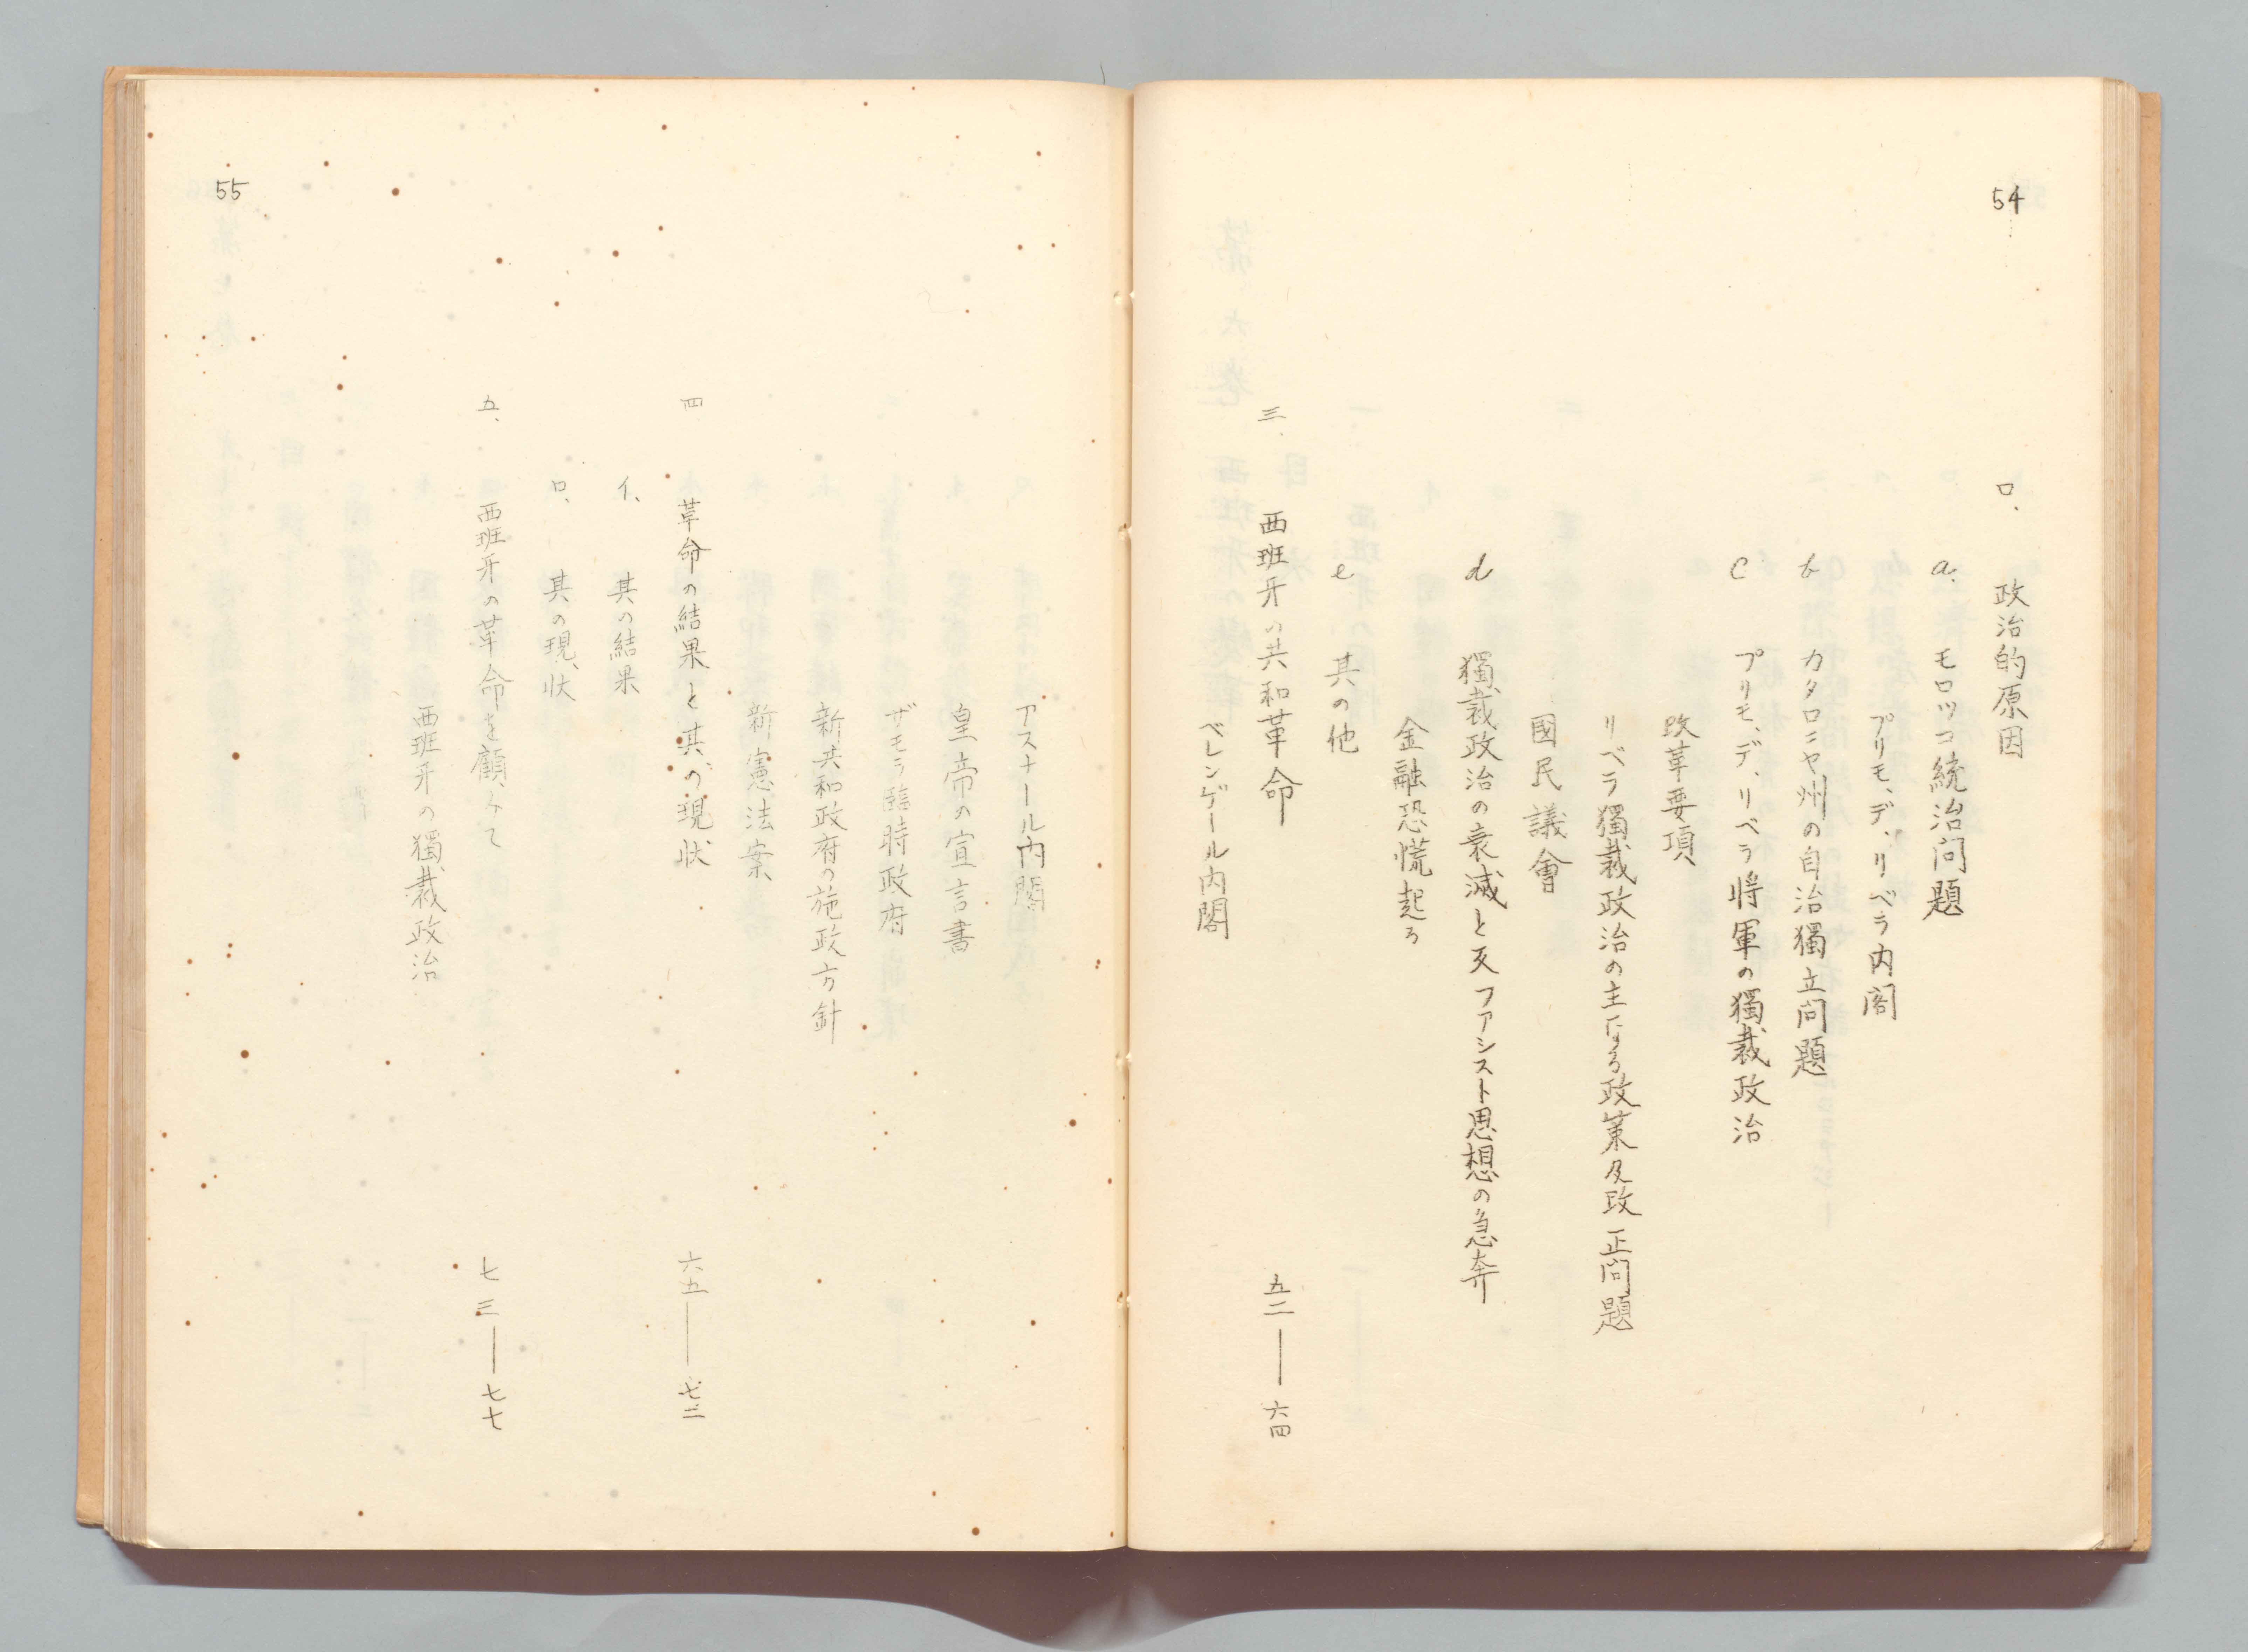 54
ロ、政治的原因
a. モロッコ統治问題
プリモ、デ、リベラ内閣
b カタロニヤ州の自治獨立问題
c プリモ、デ、リベラ将軍の獨裁政治
改革要項
リベラ獨裁政治の主なる政策及改正问題
國民議會
d 獨裁政治の衰滅と反ファシスト思想の急奔
金融恐慌起る
e 其の他
三、西班牙の共和革命 五二—六四
ベレンゲール内閣
55
アスナール内閣
皇帝の宣言書
ザモラ臨時政府
新共和政府の施政方針
新憲法案
四 革命の結果と其の現状 六五—七二
イ、其の結果
ロ、其の現状
五、西班牙の革命を顧みて 七三—七七
西班牙の獨裁政治